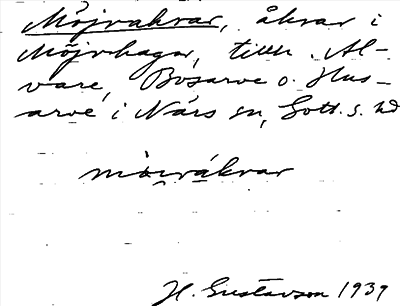 Möjrvakrar, åkrar i
Möjrhagar, tillh. Al-
vare, Bosarve o. Hus-
arve i Närs sn, Gotl. s. hd
mòirákrar
H. Gustavson 1939